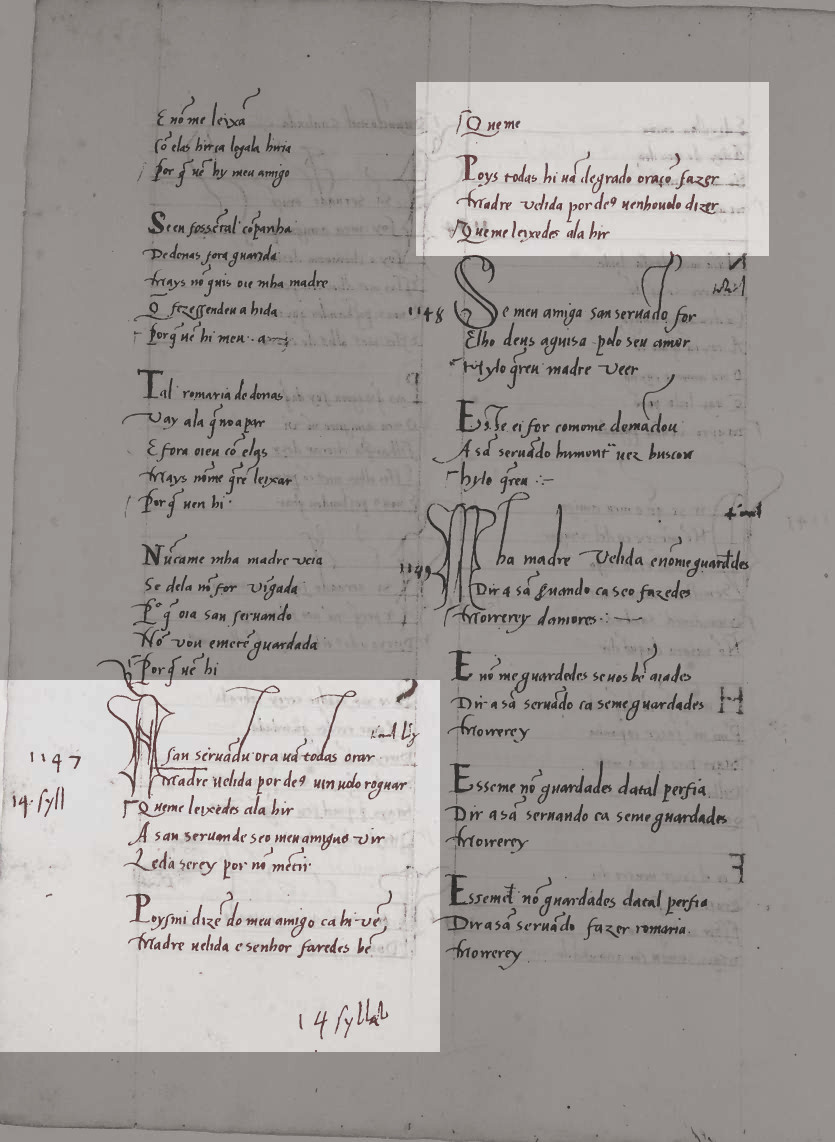 E nõ me leixã
Cõ elas hir ca logala hiria
Por q̃ uẽ hy meu amigo
Se eu fosse tal cõpanha
De donas fora guarida
Mays nõ quis oie mha madre
Q̃ fezessendeu a hida
Por q̃ uẽ hi meu . a
Tal romaria de donas
Vay ala q̃ nõ a par
E fora oieu cõ elas
Mays nõme q̃re leixar
Por q̃ uen hi
Nũca me mha madre veia
Se dela nõ for uĩgada
P̃ q̃ oia san seruando
Nõ vou e me tẽ guardada
Por q̃ uẽ hi
1147
14. syll
A san seruãdu ora uã todas orar
Madre uelida por deꝰ uin uolo roguar
Que me leixedes ala hir
A san seruando se o meu amiguo vir
Leda serey por nõ mẽtir
Poys mi dizẽ do meu amigo ca hi vẽ
Madre uelida e senhor faredes bẽ
14 syllab
Que me
Poys todas hi uã de grado oraçõ fazer
Madre velida por deꝰ uenhouolo dizer
Que me leixedes ala hir
1148
Se meu amiga san seruãdo for
E lho deus aguisa polo seu amor
Hylo q̃reu madre veer
E sse ei for como me demãdou
A sã seruãdo hu mont̃ uez buscou
hylo q̃reu
1149
Mha madre velida e nõme guardedes
Dir a sã seruando ca seo fazedes
Morrerey damores
E nõ me guardedes se uos bẽ aiades
Dir a sã seruãdo ca seme guardades
Morrerey
E sseme nõ guardades datal perfia
Dir a sã seruando ca seme guardades
Morrerey
E sseme nõ guardades datal perfia
Dir a sã seruãdo fazer romaria
Morrerey